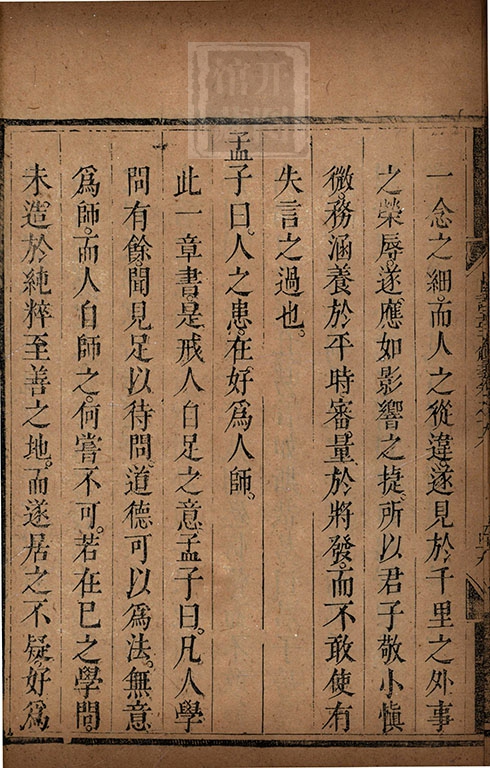 一念之細。而人之從違。遂見於千里之外事
之榮辱。遂應如影響之捷。所以君子敬小慎
微。務涵養於平時。審量於將發。而不敢使有
失言之過也。
孟子曰。人之患。在好為人師。
此一章書。是戒人自足之意。孟子曰。凡人學
問有餘。聞見足以待問。道德可以為法。無意
為師。而人自師之。何嘗不可。若在已之學問。
未造於純粹至善之地。而遂居之不疑。好為